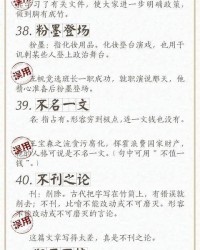 学习了有关文件，使大家进一步明确政策，
做到胸有成竹。
38. 粉墨登场
粉墨：指化妆用品。化妆登台演戏，也用于
讥刺某些人登上政治舞台。
误用
竞选班长一职成功，就职演说那天，他
精心准备后粉墨登场。
39. 不名一文
名：指占有。形容穷到极点，连一文钱也没有。
误用
之流贪污腐化，挥霍浪费国家财产，
人格可说是不名一文。(句中可用"不值一
钱"。)
40. 不刊之论
刊：削除。古代把字写在竹简上，有错误就
削去；不刊，比喻不能改动或不可磨灭。形容
不能改动或不可磨灭的言论。
误用
这篇文章写得太差，真是不刊之论。